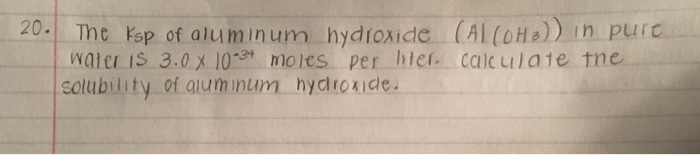 20. The Ksp of aluminum hydroxide (Al(OH₃)) in pure
water is 3.0 x 10⁻³⁴ moles per liter. calculate the
solubility of aluminum hydroxide.